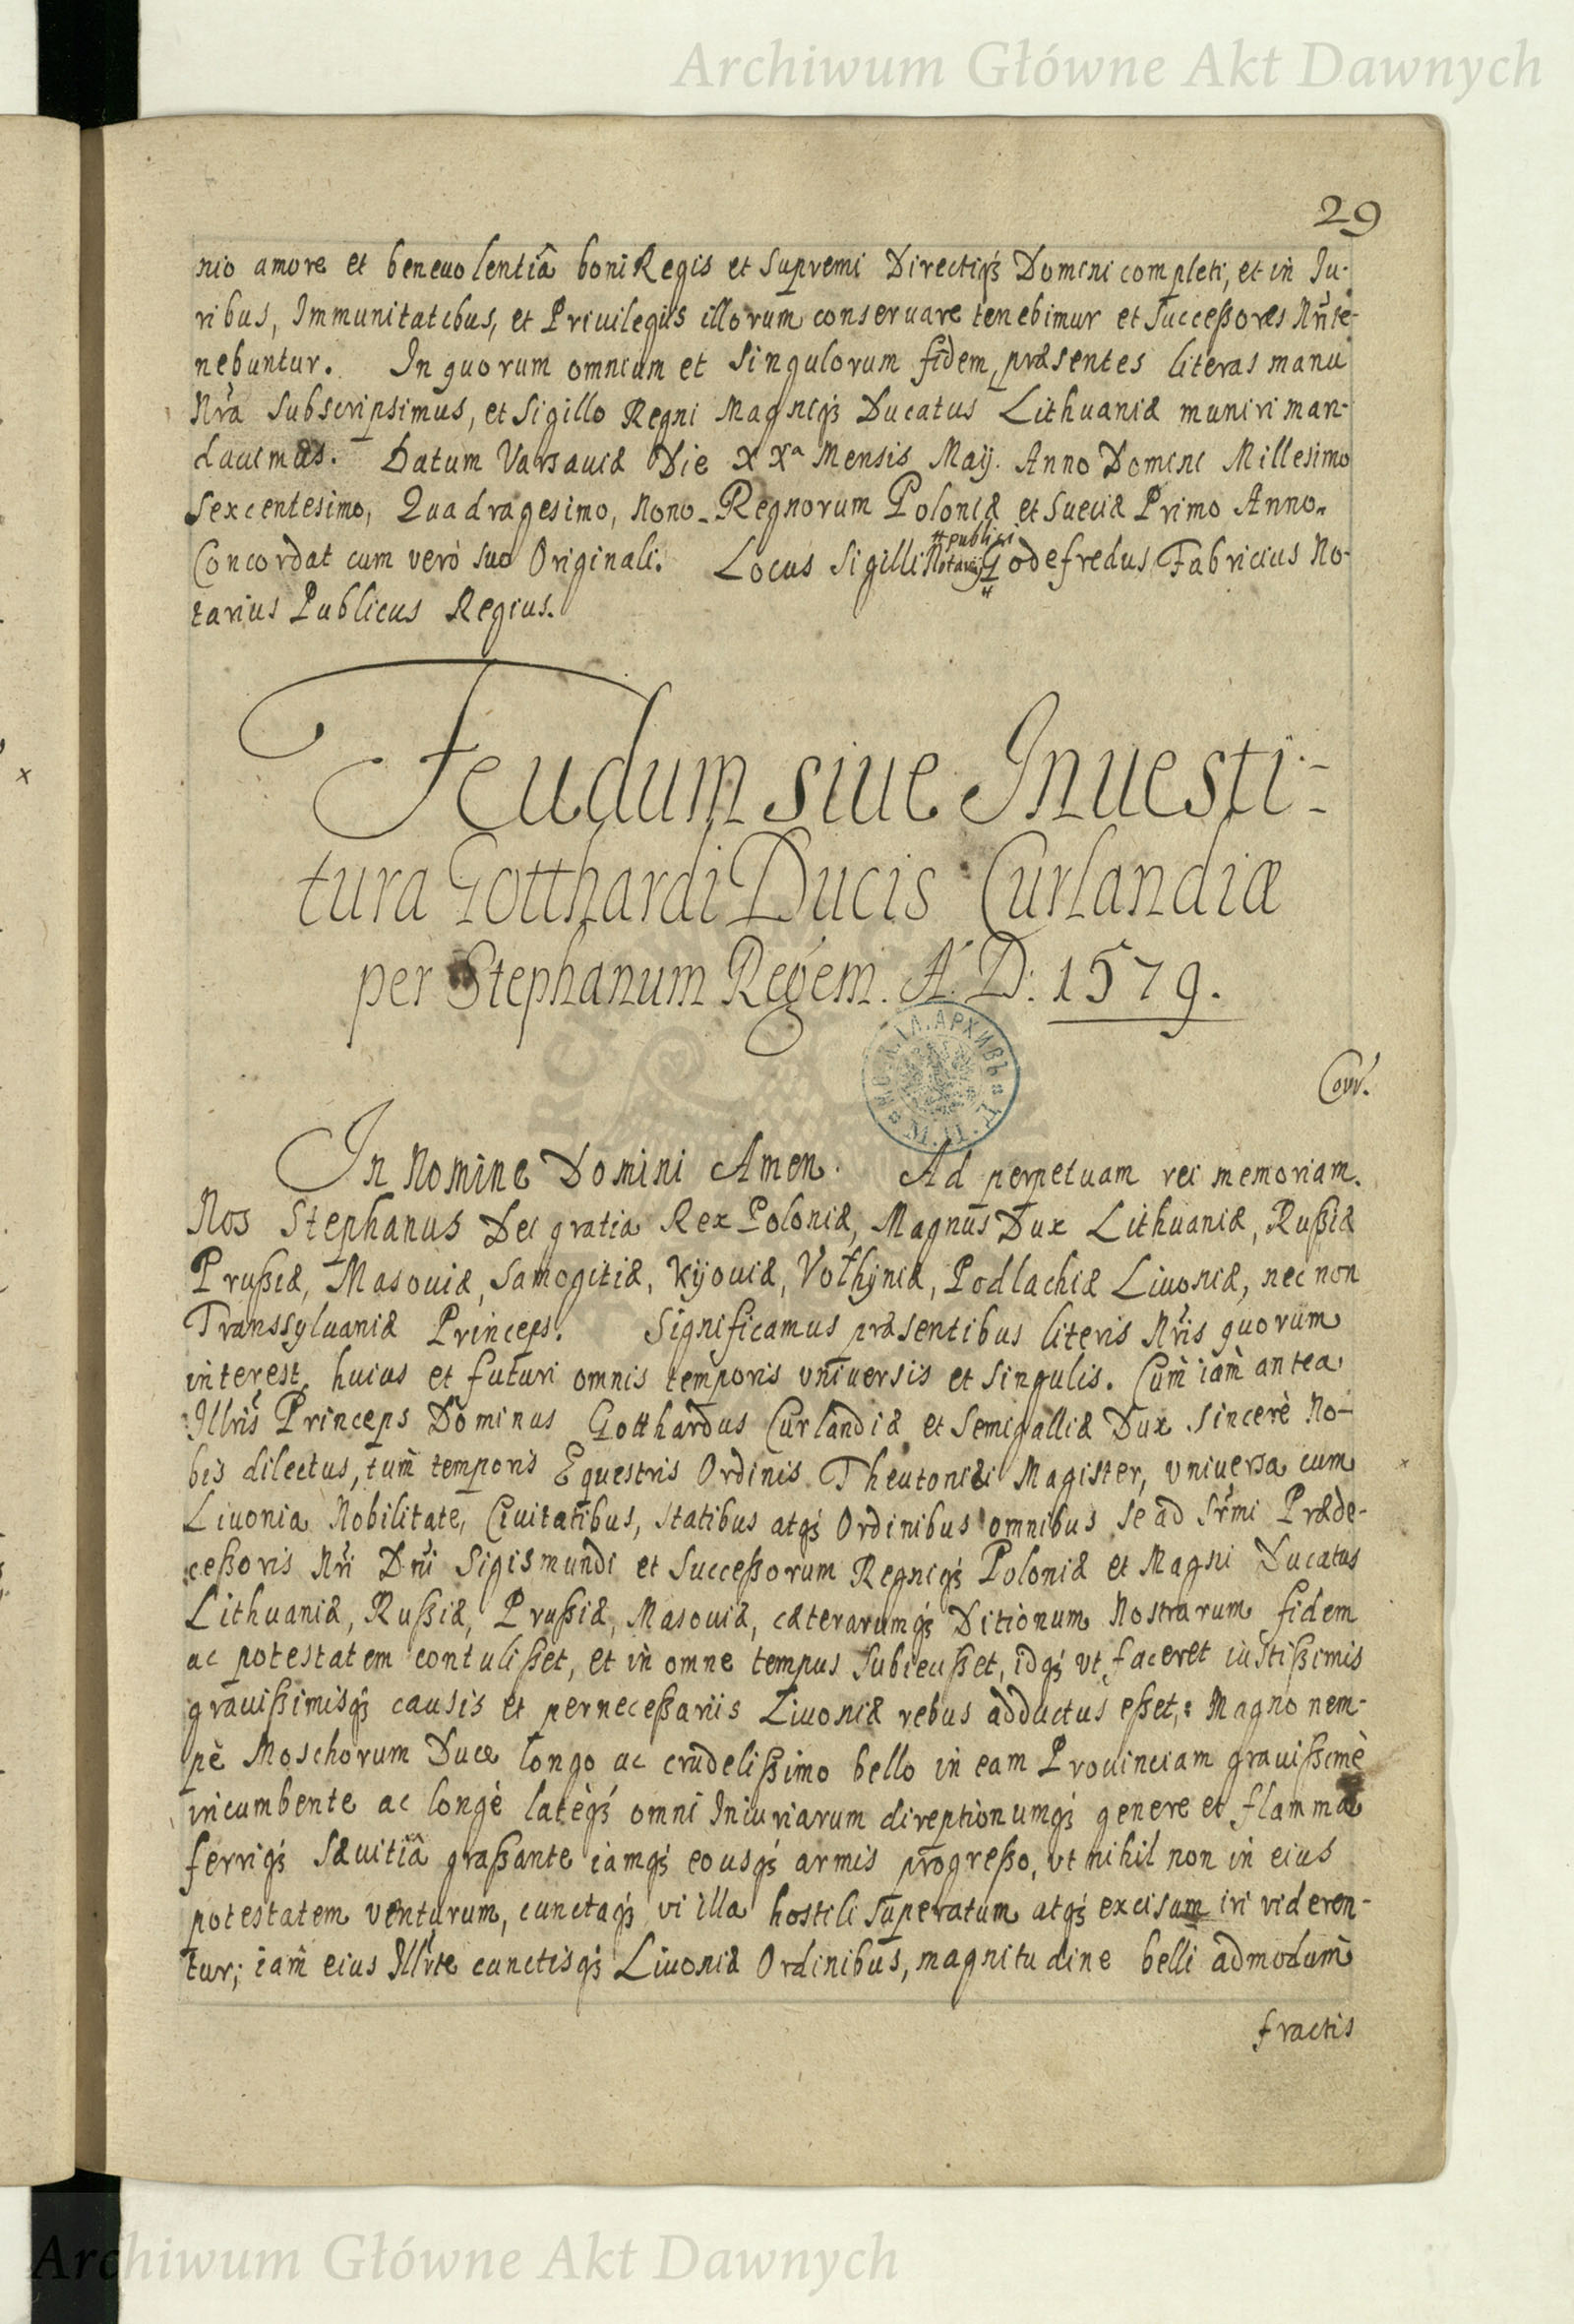 Archiwum Główne Akt Dawnych
29
nio amore et beneuolentiâ boni Regis et Supremi Directiq́₃ Domini completi, et in Ju-
ribus, Immunitatibus, et Priuilegijs illorum conseruare tenebimur et Succeßores Nr̃i te-
nebuntur. In quorum omnium et singulorum fidem, præsentes literas manu
Nr̃a Subscripsimus, et Sigillo Regni Magniq́₃ Ducatus Lithuaniæ muniri man-
dauimus. Datum Varsauiæ Die XXª Mensis Maij. Anno Domini Millesimo
Sexcentesimo, Quadragesimo, Nono. Regnorum Poloniæ et Sueciæ Primo Anno.
publici
Concordat cum verò suo Originali. Locus Sigilli Notarij Godefredus Fabricius No-
tarius Publicus Regius.
Feudum siue Inuesti-
tura Gotthardi Ducis Curlandiæ
per Stephanum Regem. A. D: 1579.
Corr.
In Nomine Domini Amen. Ad perpetuam rei memoriam.
Nos Stephanus Dei gratia Rex Poloniæ, Magnus Dux Lithuaniæ, Rußiæ
Prußiæ, Masouiæ, Samogitiæ, Kijouiæ, Volhÿniæ, Podlachiæ Liuoniæ, nec non
Transsyluaniæ Princeps. Significamus præsentibus literis Nr̃is quorum
interest, huius et futuri omnis temporis vniuersis et singulis. Cùm iàm antea
Illris̃ Princeps Dominus Gotthardus Curlandiæ et Semigalliæ Dux sincerè No-
bis dilectus, tum̃ temporis Equestris Ordinis Theutonici Magister, vniuersa cum
Liuonia Nobilitate, Ciuitatibus, Statibus atq́₃ Ordinibus omnibus se ad Sr̃mi Præde-
ceßoris Nr̃i Dn̄i Sigismundi et Succeßorum Regniq́₃ Poloniæ et Magni Ducatus
Lithuaniæ, Rußiæ, Prußiæ, Masouiæ, cæterarumq́₃ Ditionum Nostrarum fidem
ac potestatem contulißet, et in omne tempus Subiecißet, idq́₃ vt faceret iustißimis
grauißimisq́₃ causis et perneceßariis Liuoniæ rebus adductus eßet,: Magno nem-
pè Moschorum Duce longo ac crudelißimo bello in eam Prouinciam grauißimè
incumbente ac longè latèq́₃ omni Iniuriarum direptionumq́₃ genere et flamma
ferriq́₃ sæuitiâ graßante iamq́₃ eousq́₃ armis progreßo, vt nihil non in eius
potestatem venturum, cunctaq́₃ vi illa hostili superatum atq́₃ excisum iri videren-
tur; iam̃ eius Illr̃te cunctisq́₃ Liuoniæ Ordinibus, magnitudine belli admodum̀
fractis
Archiwum Główne Akt Dawnych